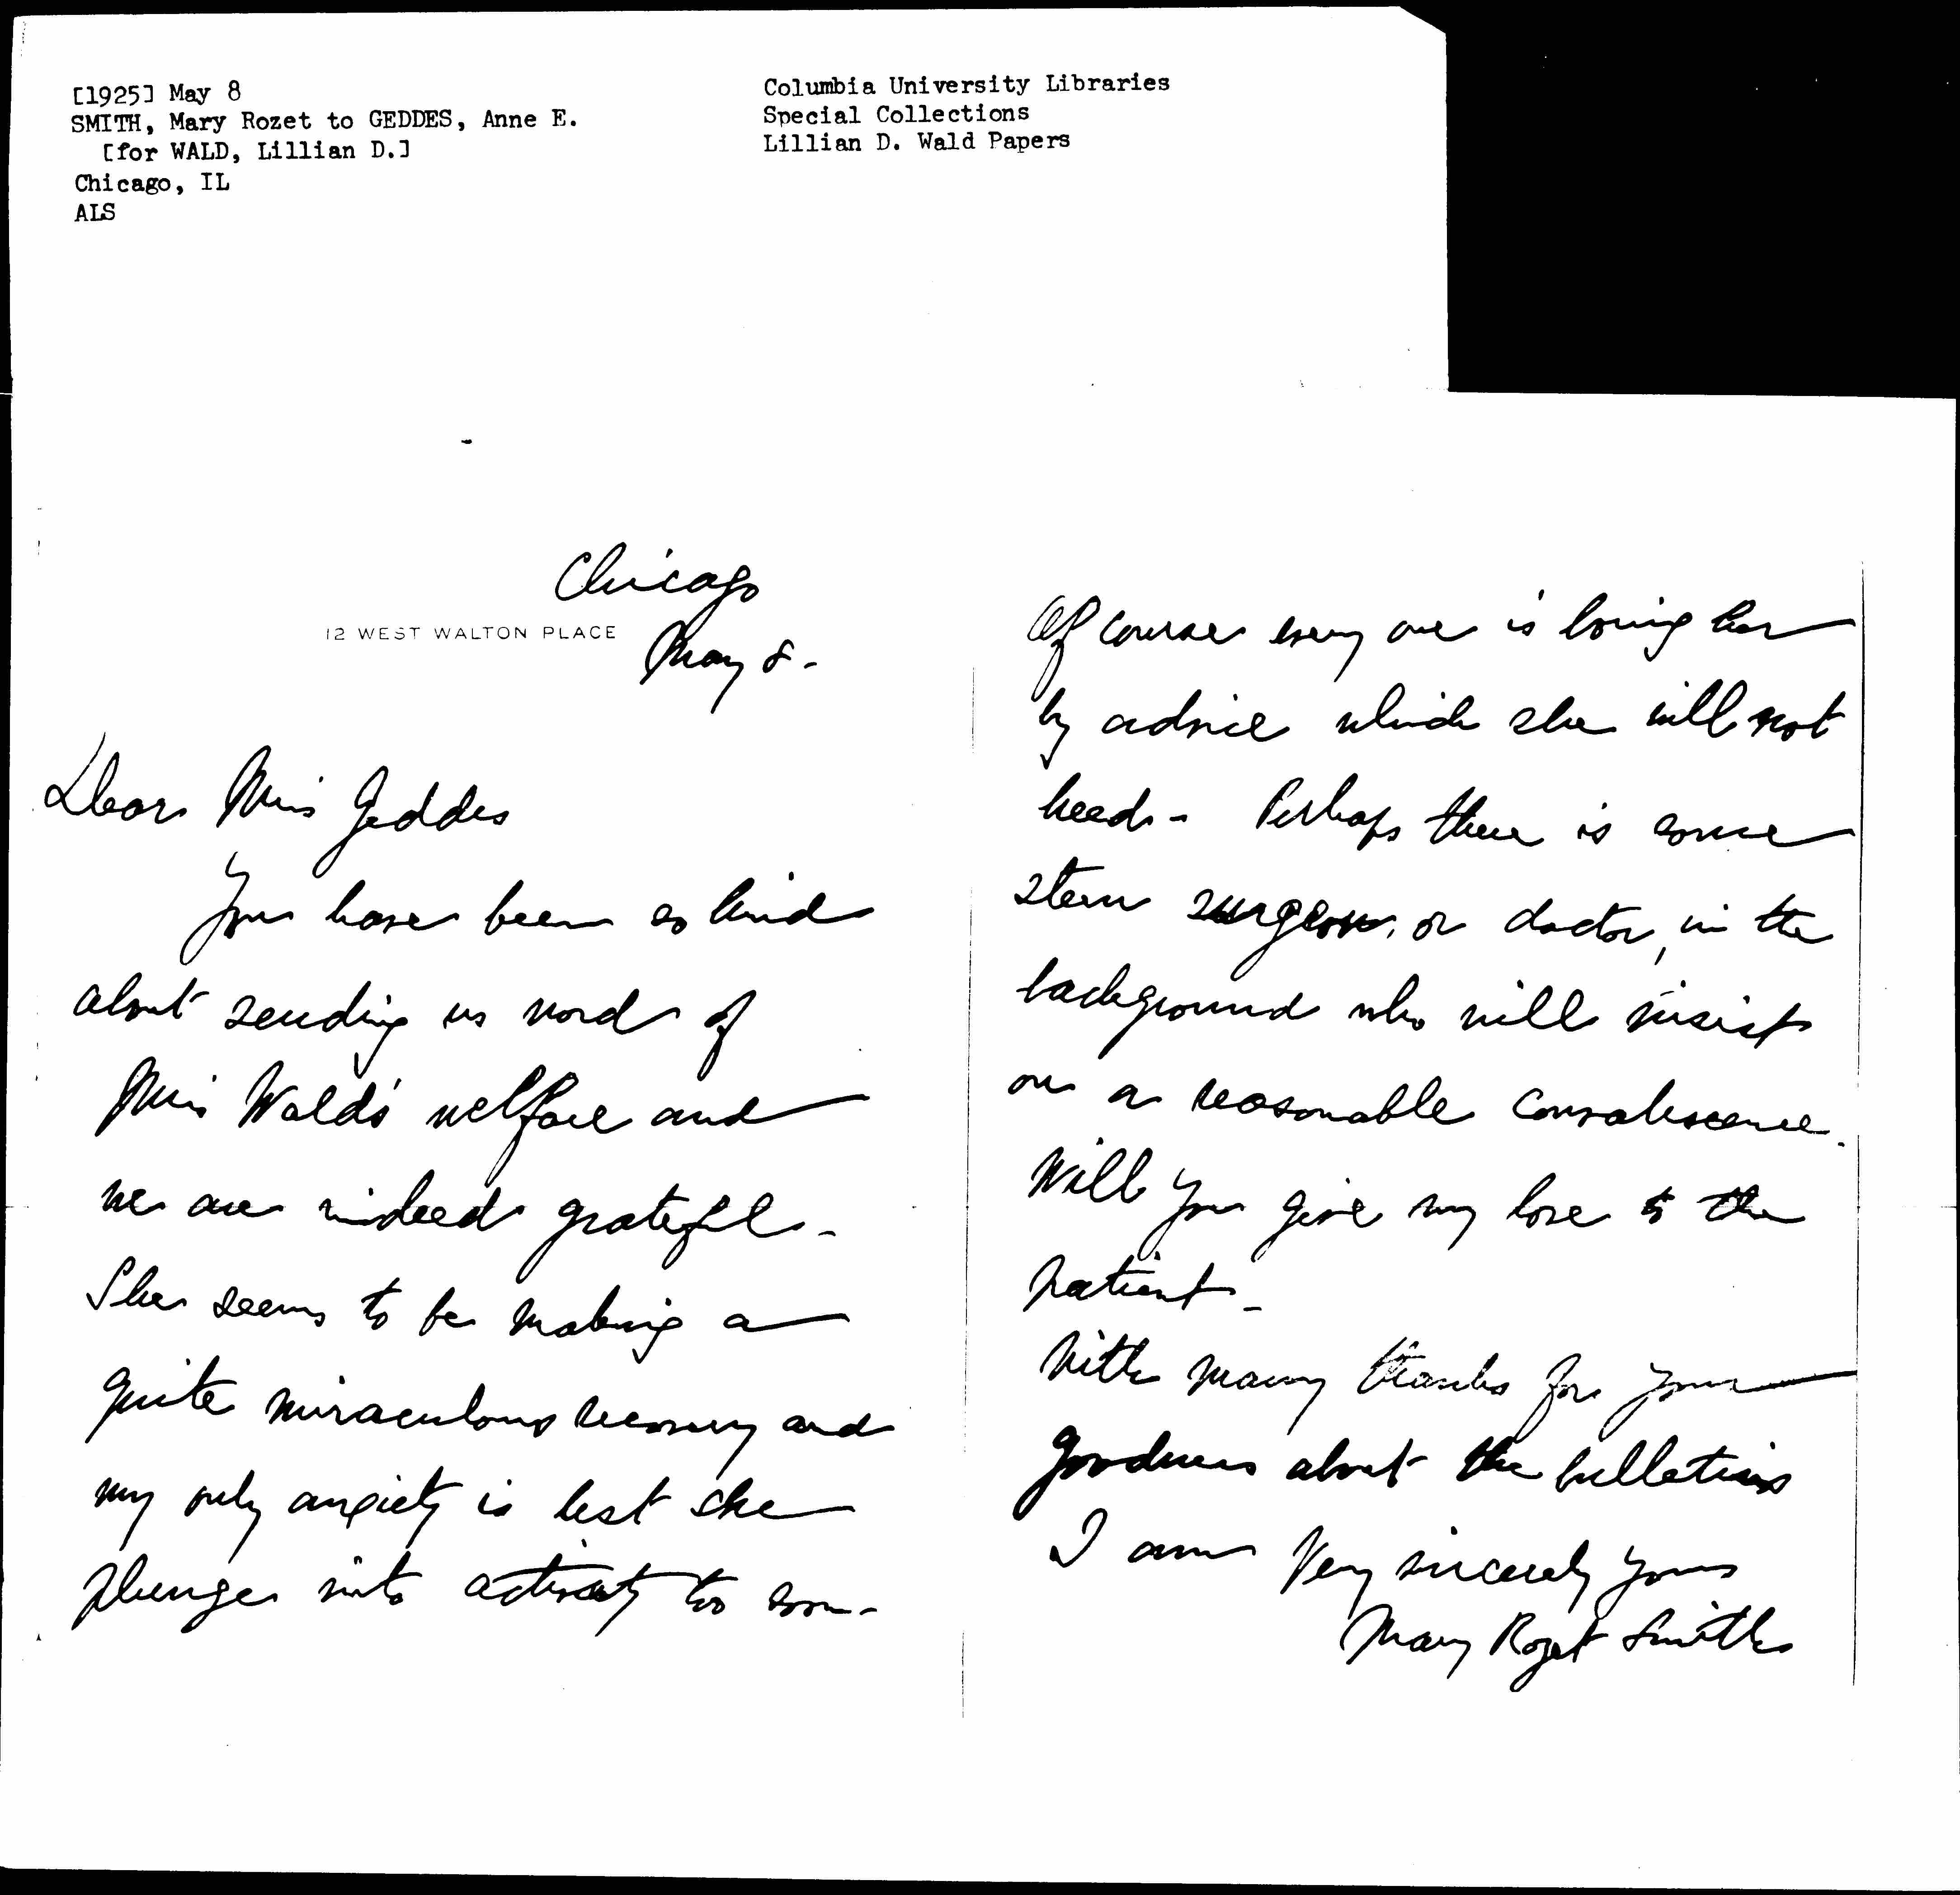 [1925] May 8
SMITH, Mary Rozet to GEDDES, Anne E.
[for WALD, Lillian D.]
Chicago, IL
ALS
Columbia University Libraries
Special Collections
Lillian D. Wald Papers
Chicago
12 WEST WALTON PLACE
May 8-
Dear Miss Geddes
You have been so kind
about sending us word of
Miss Wald's welfare and
we are indeed grateful-
She seems to be making a
quite miraculous recovery and
my only anxiety is lest she
plunge into activity too soon-
Of course every one is boring her
by advice which she will not
heed- Perhaps there is some
stern surgeon, or doctor, in the
background who will insist
on a reasonable convalescence.
Will you give my love to the
patient-
With many thanks for your
goodness about the bulletins
I am Very sincerely yours
Mary Rozet Smith